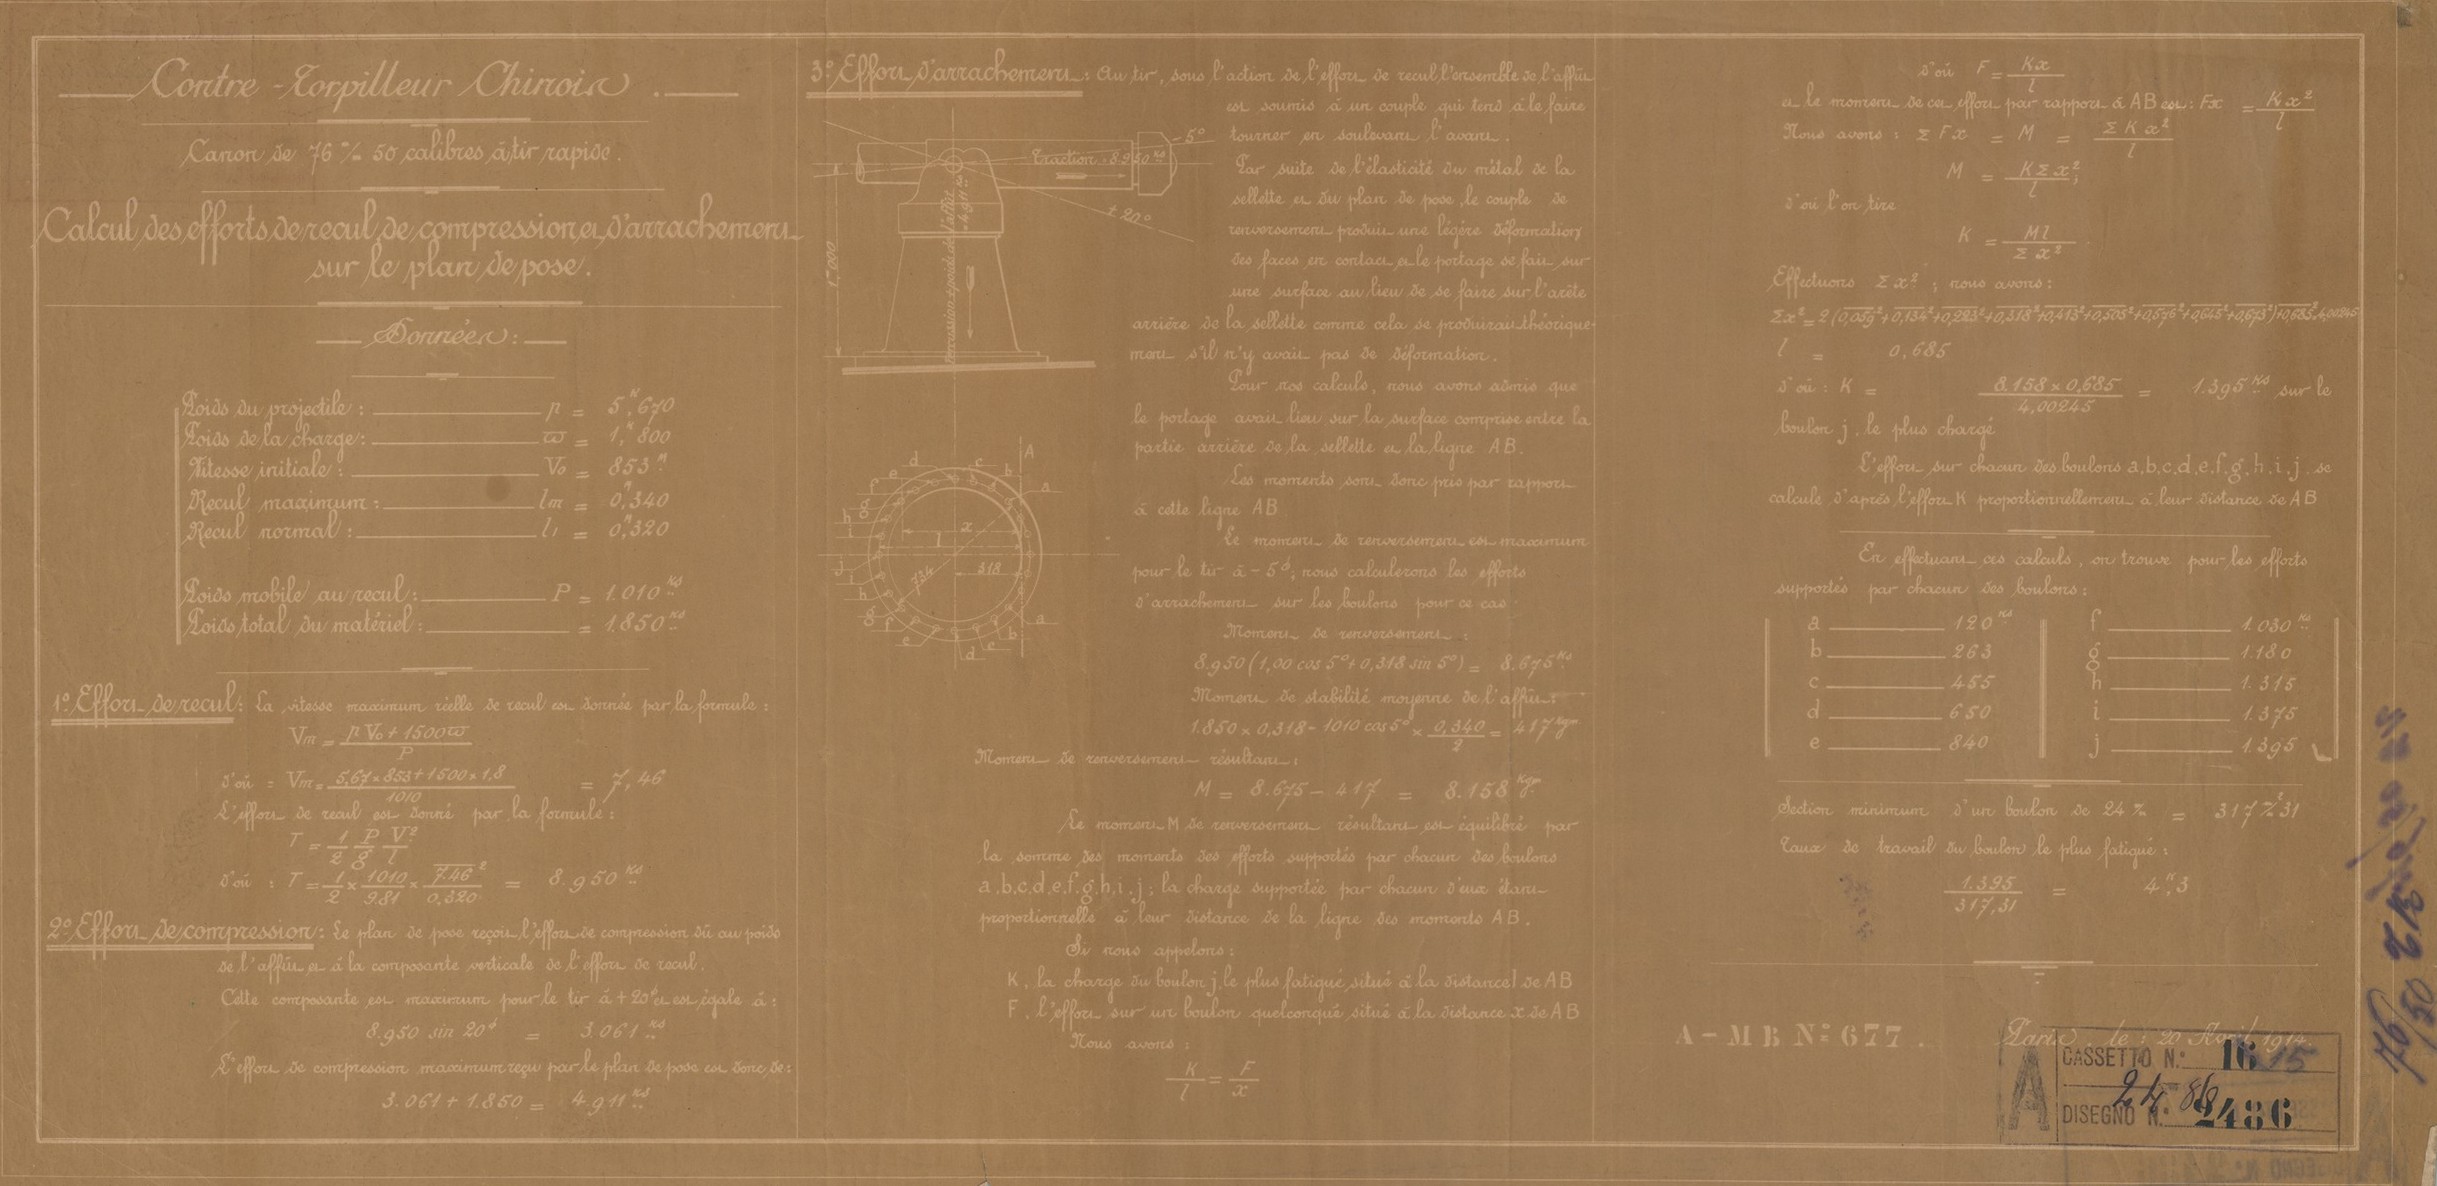 Contre-Torpilleur Chinois.
Canon de 76 m/m 50 calibres à tir rapide.
Calcul des efforts de recul, de compression et d'arrachement
sur le plan de pose.
Données:
Poids du projectile: p = 5,K670
Poids de la charge: ϖ = 1,K800
Vitesse initiale: Vo = 853 m
Recul maximum: lm = 0,m340
Recul normal: l1 = 0,m320
Poids mobile au recul: P = 1.010 Ks
Poids total du matériel: = 1.850 Ks
1º Effort de recul: La vitesse maximum réelle de recul est donnée par la formule:
Vm = p Vo + 1500 ϖ / P
d'où = Vm = 5,67 × 853 + 1500 × 1,8 / 1010 = 7,46
L'effort de recul est donné par la formule:
T = 1/2 P/g V²/l
d'où : T = 1/2 × 1010/9,81 × 7,46²/0,320 = 8.950 Ks
2º Effort de compression: Le plan de pose reçoit l'effort de compression dû au poids
de l'affût et à la composante verticale de l'effort de recul.
Cette composante est maximum pour le tir à +20° et est égale à:
8.950 sin 20° = 3.061 Ks
L'effort de compression maximum reçu par le plan de pose est donc de:
3.061 + 1.850 = 4.911 Ks
3º Effort d'arrachement: Au tir, sous l'action de l'effort de recul l'ensemble de l'affût
est soumis à un couple qui tend à le faire
tourner en soulevant l'avant.
Par suite de l'élasticité du métal de la
sellette et du plan de pose, le couple de
renversement produit une légère déformation
des faces en contact et le portage se fait sur
une surface au lieu de se faire sur l'arête
arrière de la sellette comme cela se produirait théorique-
ment s'il n'y avait pas de déformation.
-5°
Traction = 8.950 Ks
+20°
1,m000
Percussion + poids de l'affût
4.911 Ks
Pour nos calculs, nous avons admis que
le portage avait lieu sur la surface comprise entre la
partie arrière de la sellette et la ligne AB.
Les moments sont donc pris par rapport
à cette ligne AB
Le moment de renversement est maximum
pour le tir à -5°; nous calculerons les efforts
d'arrachement sur les boulons pour ce cas.
d c A
e b
f a
g
h
i
x
l
j
734
318
i
h
g
f
e
d
c
b
a
Moment de renversement:
8.950 (1,00 cos 5° + 0,318 sin 5°) = 8.675 Ks
Moment de stabilité moyenne de l'affût:
1.850 × 0,318 - 1010 cos 5° × 0,340/2 = 417 Kgm
Moment de renversement résultant:
M = 8.675 - 417 = 8.158 Kgm
Le moment M de renversement résultant est équilibré par
la somme des moments des efforts supportés par chacun des boulons
a,b,c,d,e,f,g,h,i,j; la charge supportée par chacun d'eux étant
proportionnelle à leur distance de la ligne des moments AB.
Si nous appelons:
K, la charge du boulon j, le plus fatigué, situé à la distance l de AB
F, l'effort sur un boulon quelconque situé à la distance x de AB
Nous avons:
K/l = F/x
d'où F = Kx/l
et le moment de cet effort par rapport à AB est: Fx = Kx²/l
Nous avons: Σ Fx = M = Σ K x²/l
M = KΣx²/l;
d'où l'on tire
K = Ml/Σ x²
Effectuons Σ x²; nous avons:
Σx² = 2 (0,059² + 0,134² + 0,223² + 0,318² + 0,413² + 0,505² + 0,576² + 0,645² + 0,673²) + 0,685² = 4,00245
l = 0,685
d'où: K = 8.158 × 0,685 / 4,00245 = 1.395 Ks sur le
boulon j, le plus chargé
L'effort sur chacun des boulons a,b,c,d,e,f,g,h,i,j se
calcule d'après l'effort K proportionnellement à leur distance de AB
En effectuant ces calculs, on trouve pour les efforts
supportés par chacun des boulons:
a 120 Ks f 1.030 Ks
b 263 g 1.180
c 455 h 1.315
d 650 i 1.375
e 840 j 1.395
Section minimum d'un boulon de 24 m/m = 317 m/m² 31
Taux de travail du boulon le plus fatigué:
1.395/317,31 = 4,K3
A-MB Nº 677.
Paris, le: 20 Avril 1914.
A
CASSETTO N.º 16 15
DISEGNO N.º 2486
76/50